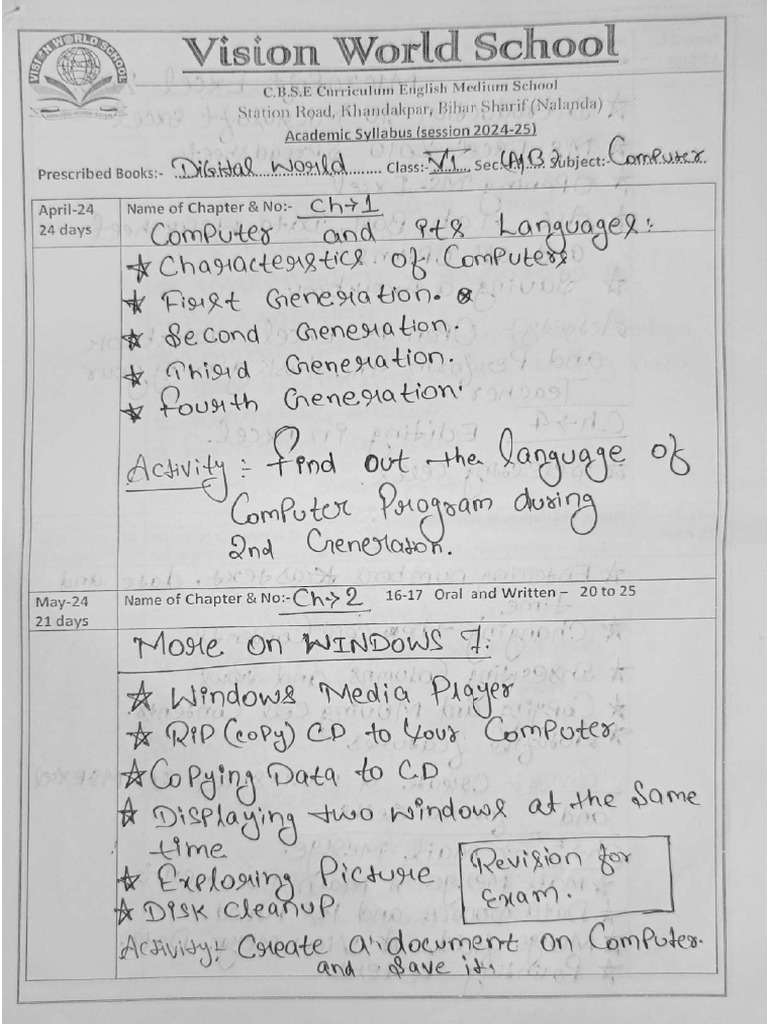 VISION WORLD SCHOOL
Vision World School
C.B.S.E Curriculum English Medium School
Station Road, Khandakpar, Bihar Sharif (Nalanda)
Academic Syllabus (session 2024-25)
Prescribed Books:- Digital World Class:- VI Sec:(A,B) Subject:- Computer
April-24
24 days
Name of Chapter & No:- Ch→1
Computer and its Languages:
★ Characteristics of Computers
★ First Generation.
★ Second Generation.
★ Third Generation.
★ Fourth Generation.
Activity:- Find out the language of
Computer Program during
2nd Generation.
May-24
21 days
Name of Chapter & No:- Ch→2 16-17 Oral and Written – 20 to 25
More on WINDOWS 7:
★ Windows Media Player
★ RIP (copy) CD to Your Computer
★ Copying Data to CD
★ Displaying two windows at the same
time
★ Exploring Picture
★ Disk cleanup
Revision for
Exam.
Activity:- Create a document on Computer.
and save it.